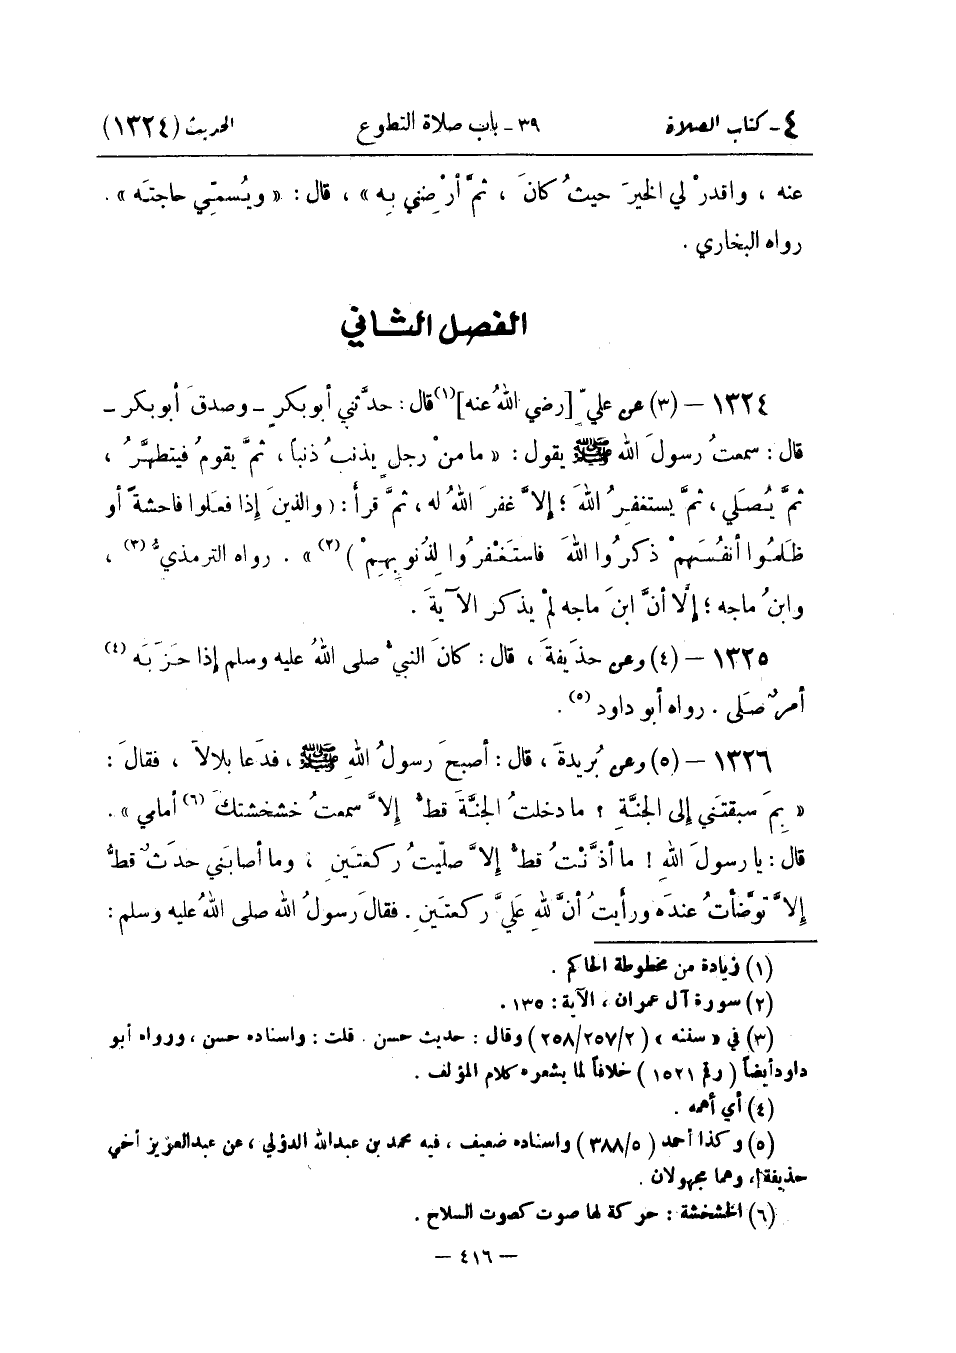 ٤- كتاب الصلاة ٣٩ - باب صلاة التطوع الحديث (١٣٢٤)
عنه ، واقدرْ لي الخيرَ حيثُ كانَ ، ثمَّ أرْضِني بِه » ، قال : « ويُسمِّي حاجتَه » .
رواه البخاري .
الفصل الثاني
١٣٢٤ – (٣) عن عليّ [رضي اللهُ عنه](١) قال : حدَّثني أبو بكرٍ – وصدقَ أبو بكر –
قال : سمعتُ رسولَ الله ﷺ يقول : « ما منْ رجلٍ يذنبُ ذنباً ، ثمَّ يقومُ فيتطهَّرُ ،
ثمَّ يُصَلي ، ثمَّ يستغفِرُ اللهَ ؛ إلاَّ غفرَ اللهُ له ، ثمَّ قرأ : ( والذينَ إذا فعَلوا فاحشةً أو
ظلَمُوا أنفُسَهمْ ذكرُوا اللهَ فاستَغْفرُوا لِذُنوبِهِمْ ) (٢) » . رواه الترمذيُّ (٣) ،
وابنُ ماجه ؛ إلَّا أنَّ ابنَ ماجه لمْ يذكر الآيةَ .
١٣٢٥ – (٤) وعن حذَيفةَ ، قال : كانَ النبيُّ صلى اللهُ عليه وسلم إذا حزَبَه (٤)
أمرٌ صلَى . رواه أبو داود (٥) .
١٣٢٦ – (٥) وعن بُريدةَ ، قال : أصبحَ رسولُ اللهِ ﷺ ، فدَعا بلالاً ، فقالَ :
« بِمَ سبقتَني إلى الجنَّةِ ؟ ما دخلتُ الجنَّةَ قطُّ إلاَّ سمعتُ خشخشتكَ (٦) أمامي » .
قال : يا رسولَ اللهِ ! ما أذَّنْتُ قطُّ إلاَّ صلّيتُ ركعتَينِ ، وما أصابَني حدَثٌ قطُّ
إلاَّ توَّضأتُ عندَه ورأيتُ أنَّ للهِ عَلَيَّ ركعتَينِ . فقالَ رسولُ الله صلى اللهُ عليه وسلم :
(١) زيادة من مخطوطة الحاكم .
(٢) سورة آل عمران ، الآية : ١٣٥ .
(٣) في « سننه » ( ٢٥٧/٢/ ٢٥٨ ) وقال : حديث حسن . قلت : واسناده حسن ، ورواه أبو
داود أيضاً ( رقم ١٥٢١ ) خلافاً لما يشعره كلام المؤلف .
(٤) أي أهمه .
(٥) وكذا أحمد ( ٣٨٨/٥ ) واسناده ضعيف ، فيه محمد بن عبدالله الدؤلي ، عن عبدالعزيز أخي
حذيفة ، وهما مجهولان .
(٦) الخشخشة : حركة لها صوت كصوت السلاح .
– ٤١٦ –